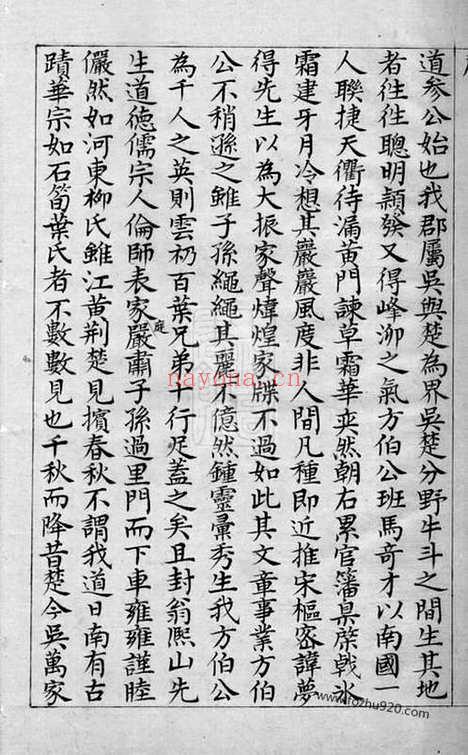 道参公始也我郡屬吳與楚為界吳楚分野牛斗之間生其地
者徃徃聰明穎發又得峰泖之氣方伯公班馬奇才以南國一
人聯捷天衢待漏黄門諫草霜華奕然朝右累官藩臬棨戟氷
霜建牙月冷想其巖巖風度非人間凡種即近推宋樞密諱夢
得先生以為大振家聲煒煌家牒不過如此其文章事業方伯
公不稍遜之雖子孫繩繩其麗不億然鍾靈彚秀生我方伯公
為千人之英則雲礽百葉兄弟十行足蓋之矣且封翁熈山先
生道德儒宗人倫師表家庭嚴肅子孫過里門而下車雍雍謹睦
儼然如河東柳氏雖江黄荆楚見擯春秋不謂我道日南有古
蹟華宗如石笥葉氏者不數數見也千秋而降昔楚今吳萬家
nayona.cn
www.fozhu920.com